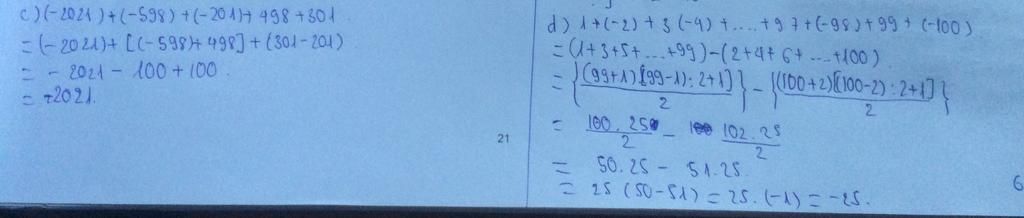 c) (-2021)+(-598)+(-201)+498+301
= (-2021)+[(-598)+498]+(301-201)
= -2021-100+100.
= -2021.
21
d) 1+(-2)+3(-4)+....+97+(-98)+99+(-100)
= (1+3+5+...+99)-(2+4+6+...+100)
= {(99+1)[99-1):2+1]/2} - {(100+2)[(100-2):2+1]/2}
= 100.25/2 - 102.25/2
= 50.25 - 51.25
= 25(50-51) = 25.(-1) = -25.
6